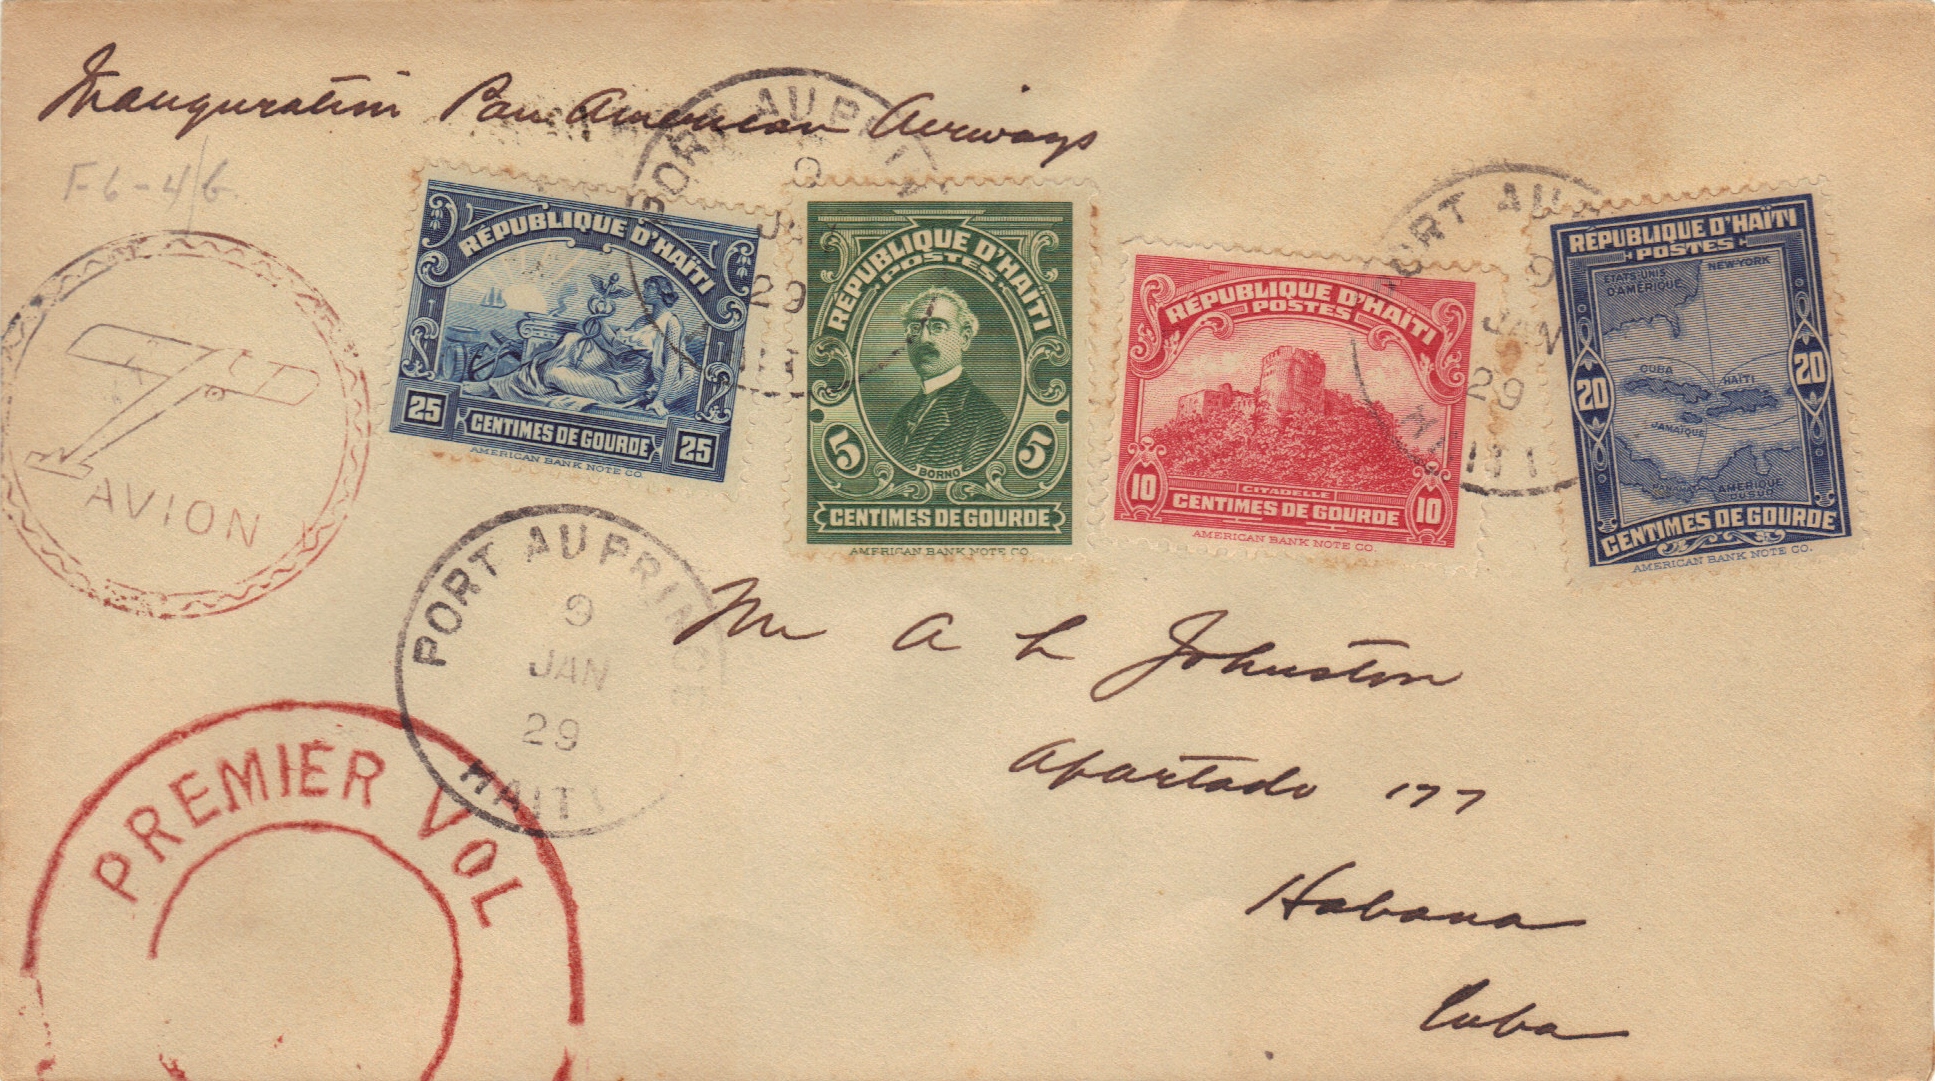 Inauguration Pan American Airways
F-6-4/6.
PORT AU PRIN
9
JAN
29
HAITI
RÉPUBLIQUE D'HAÏTI
25 CENTIMES DE GOURDE 25
AMERICAN BANK NOTE CO.
RÉPUBLIQUE D'HAÏTI
POSTES
BORNO
5 5
CENTIMES DE GOURDE
AMERICAN BANK NOTE CO.
RÉPUBLIQUE D'HAÏTI
POSTES
CITADELLE
10 CENTIMES DE GOURDE 10
AMERICAN BANK NOTE CO.
PORT AU
9
JAN
29
HAITI
RÉPUBLIQUE D'HAÏTI
POSTES
ETATS-UNIS
D'AMÉRIQUE
NEW-YORK
CUBA
HAÏTI
20 20
JAMAÏQUE
PANAMA
AMÉRIQUE
DU SUD
CENTIMES DE GOURDE
AMERICAN BANK NOTE CO.
AVION
PORT AU PRINCE
9
JAN
29
HAITI
PREMIER VOL
Mr A L Johnston
Apartado 177
Habana
Cuba